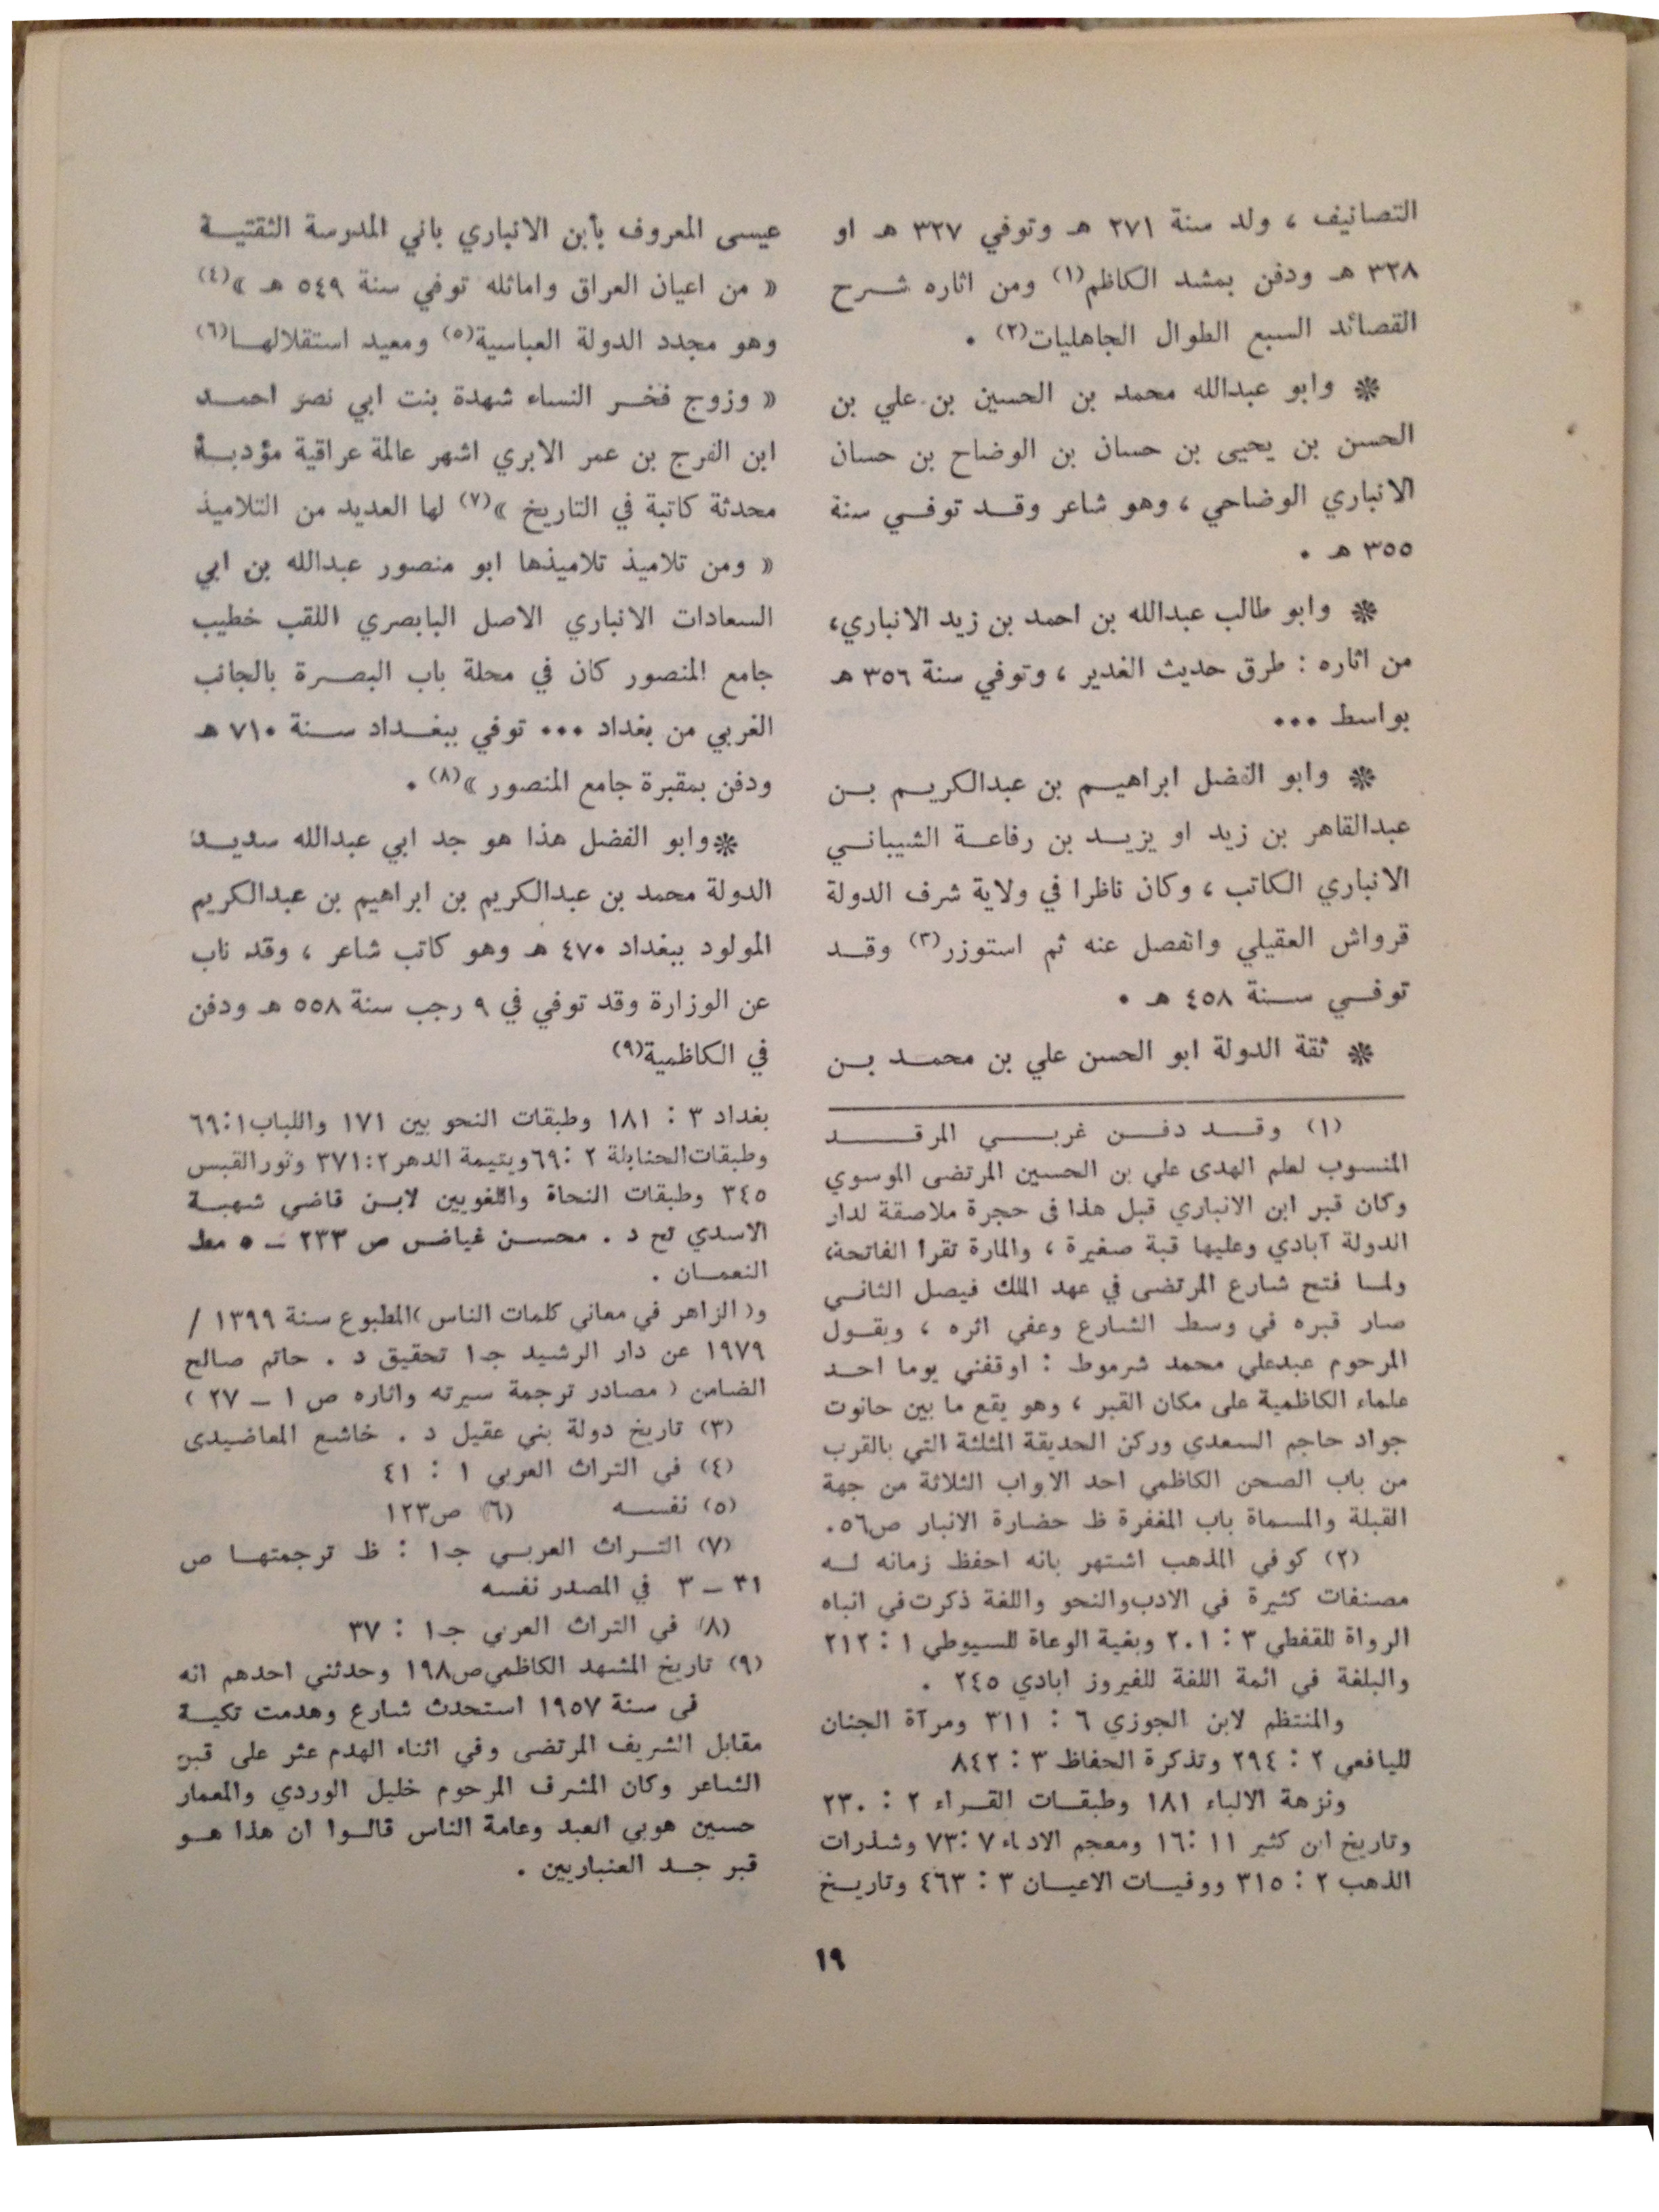 التصانيف ، ولد سنة ٢٧١ هـ وتوفي ٣٢٧ هـ او
٣٢٨ هـ ودفن بمشد الكاظم(١) ومن اثاره شرح
القصائد السبع الطوال الجاهليات(٢) ٠
❋ وابو عبدالله محمد بن الحسين بن علي بن
الحسن بن يحيى بن حسان بن الوضاح بن حسان
الانباري الوضاحي ، وهو شاعر وقد توفي سنة
٣٥٥ هـ ٠
❋ وابو طالب عبدالله بن احمد بن زيد الانباري،
من اثاره : طرق حديث الغدير ، وتوفي سنة ٣٥٦ هـ
بواسط ٠٠٠
❋ وابو الفضل ابراهيم بن عبدالكريم بن
عبدالقاهر بن زيد او يزيد بن رفاعة الشيباني
الانباري الكاتب ، وكان ناظرا في ولاية شرف الدولة
قرواش العقيلي وانفصل عنه ثم استوزر(٣) وقد
توفي سنة ٤٥٨ هـ ٠
❋ ثقة الدولة ابو الحسن علي بن محمد بن
(١) وقد دفن غربي المرقد
المنسوب لعلم الهدى علي بن الحسين المرتضى الموسوي
وكان قبر ابن الانباري قبل هذا في حجرة ملاصقة لدار
الدولة آبادي وعليها قبة صغيرة ، والمارة تقرأ الفاتحة،
ولما فتح شارع المرتضى في عهد الملك فيصل الثاني
صار قبره في وسط الشارع وعفي اثره ، ويقول
المرحوم عبدعلي محمد شرموط : اوقفني يوما احد
علماء الكاظمية على مكان القبر ، وهو يقع ما بين حانوت
جواد حاجم السعدي وركن الحديقة المثلثة التي بالقرب
من باب الصحن الكاظمي احد الاواب الثلاثة من جهة
القبلة والمسماة باب المغفرة ظ حضارة الانبار ص٥٦.
(٢) كوفي المذهب اشتهر بانه احفظ زمانه له
مصنفات كثيرة في الادب والنحو واللغة ذكرت في انباه
الرواة للقفطي ٣ : ٢٠١ وبغية الوعاة للسيوطي ١ : ٢١٢
والبلغة في ائمة اللغة للفيروز ابادي ٢٤٥ .
والمنتظم لابن الجوزي ٦ : ٣١١ ومرآة الجنان
لليافعي ٢ : ٢٩٤ وتذكرة الحفاظ ٣ : ٨٤٢
ونزهة الالباء ١٨١ وطبقات القراء ٢ : ٢٣٠
وتاريخ ابن كثير ١١ : ١٦ ومعجم الادباء ٧ : ٧٣ وشذرات
الذهب ٢ : ٣١٥ ووفيات الاعيان ٣ : ٤٦٣ وتاريخ
عيسى المعروف بأبن الانباري باني المدرسة الثقتية
« من اعيان العراق واماثله توفي سنة ٥٤٩ هـ »(٤)
وهو مجدد الدولة العباسية(٥) ومعيد استقلالها(٦)
« وزوج فخر النساء شهدة بنت ابي نصر احمد
ابن الفرج بن عمر الابري اشهر عالمة عراقية مؤدبة
محدثة كاتبة في التاريخ »(٧) لها العديد من التلاميذ
« ومن تلاميذ تلاميذها ابو منصور عبدالله بن ابي
السعادات الانباري الاصل البابصري اللقب خطيب
جامع المنصور كان في محلة باب البصرة بالجانب
الغربي من بغداد ٠٠٠ توفي ببغداد سنة ٧١٠ هـ
ودفن بمقبرة جامع المنصور »(٨) ٠
❋وابو الفضل هذا هو جد ابي عبدالله سديد
الدولة محمد بن عبدالكريم بن ابراهيم بن عبدالكريم
المولود ببغداد ٤٧٠ هـ وهو كاتب شاعر ، وقد ناب
عن الوزارة وقد توفي في ٩ رجب سنة ٥٥٨ هـ ودفن
في الكاظمية(٩)
بغداد ٣ : ١٨١ وطبقات النحو بين ١٧١ واللباب١ : ٦٩
وطبقات الحنابلة ٢ : ٦٩ ويتيمة الدهر ٢ : ٣٧١ ونور القبس
٣٤٥ وطبقات النحاة واللغويين لابن قاضي شهبة
الاسدي تح د . محسن غياض ص ٢٣٣ ــ ٥ مط
النعمان .
و( الزاهر في معاني كلمات الناس )المطبوع سنة ١٣٩٩ /
١٩٧٩ عن دار الرشيد جـ١ تحقيق د . حاتم صالح
الضامن ( مصادر ترجمة سيرته واثاره ص ١ ــ ٢٧ )
(٣) تاريخ دولة بني عقيل د . خاشع المعاضيدى
(٤) في التراث العربي ١ : ٤١
(٥) نفسه (٦) ص١٢٣
(٧) التراث العربي جـ١ : ظ ترجمتها ص
٣١ ــ ٣ في المصدر نفسه
(٨) في التراث العربي جـ١ : ٣٧
(٩) تاريخ المشهد الكاظمي ص١٩٨ وحدثني احدهم انه
في سنة ١٩٥٧ استحدث شارع وهدمت تكية
مقابل الشريف المرتضى وفي اثناء الهدم عثر على قبر
الشاعر وكان المشرف المرحوم خليل الوردي والمعمار
حسين هوبي العبد وعامة الناس قالوا ان هذا هو
قبر جد العنباريين .
١٩